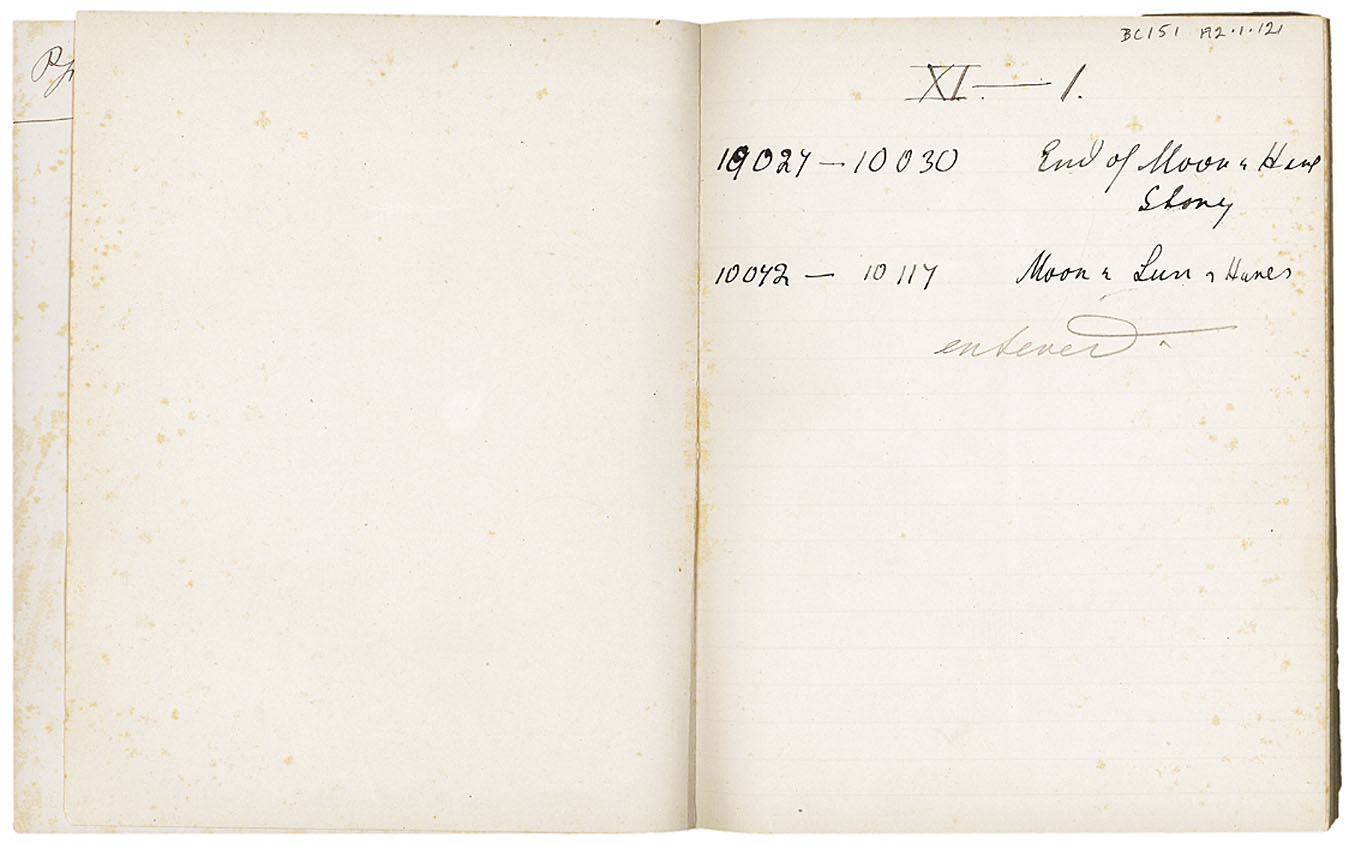 BC151 A2.1.121
XI. — 1.
10027 — 10030 End of Moon & Hare
Story
10042 — 10117 Moon & Sun & Hares
entered.